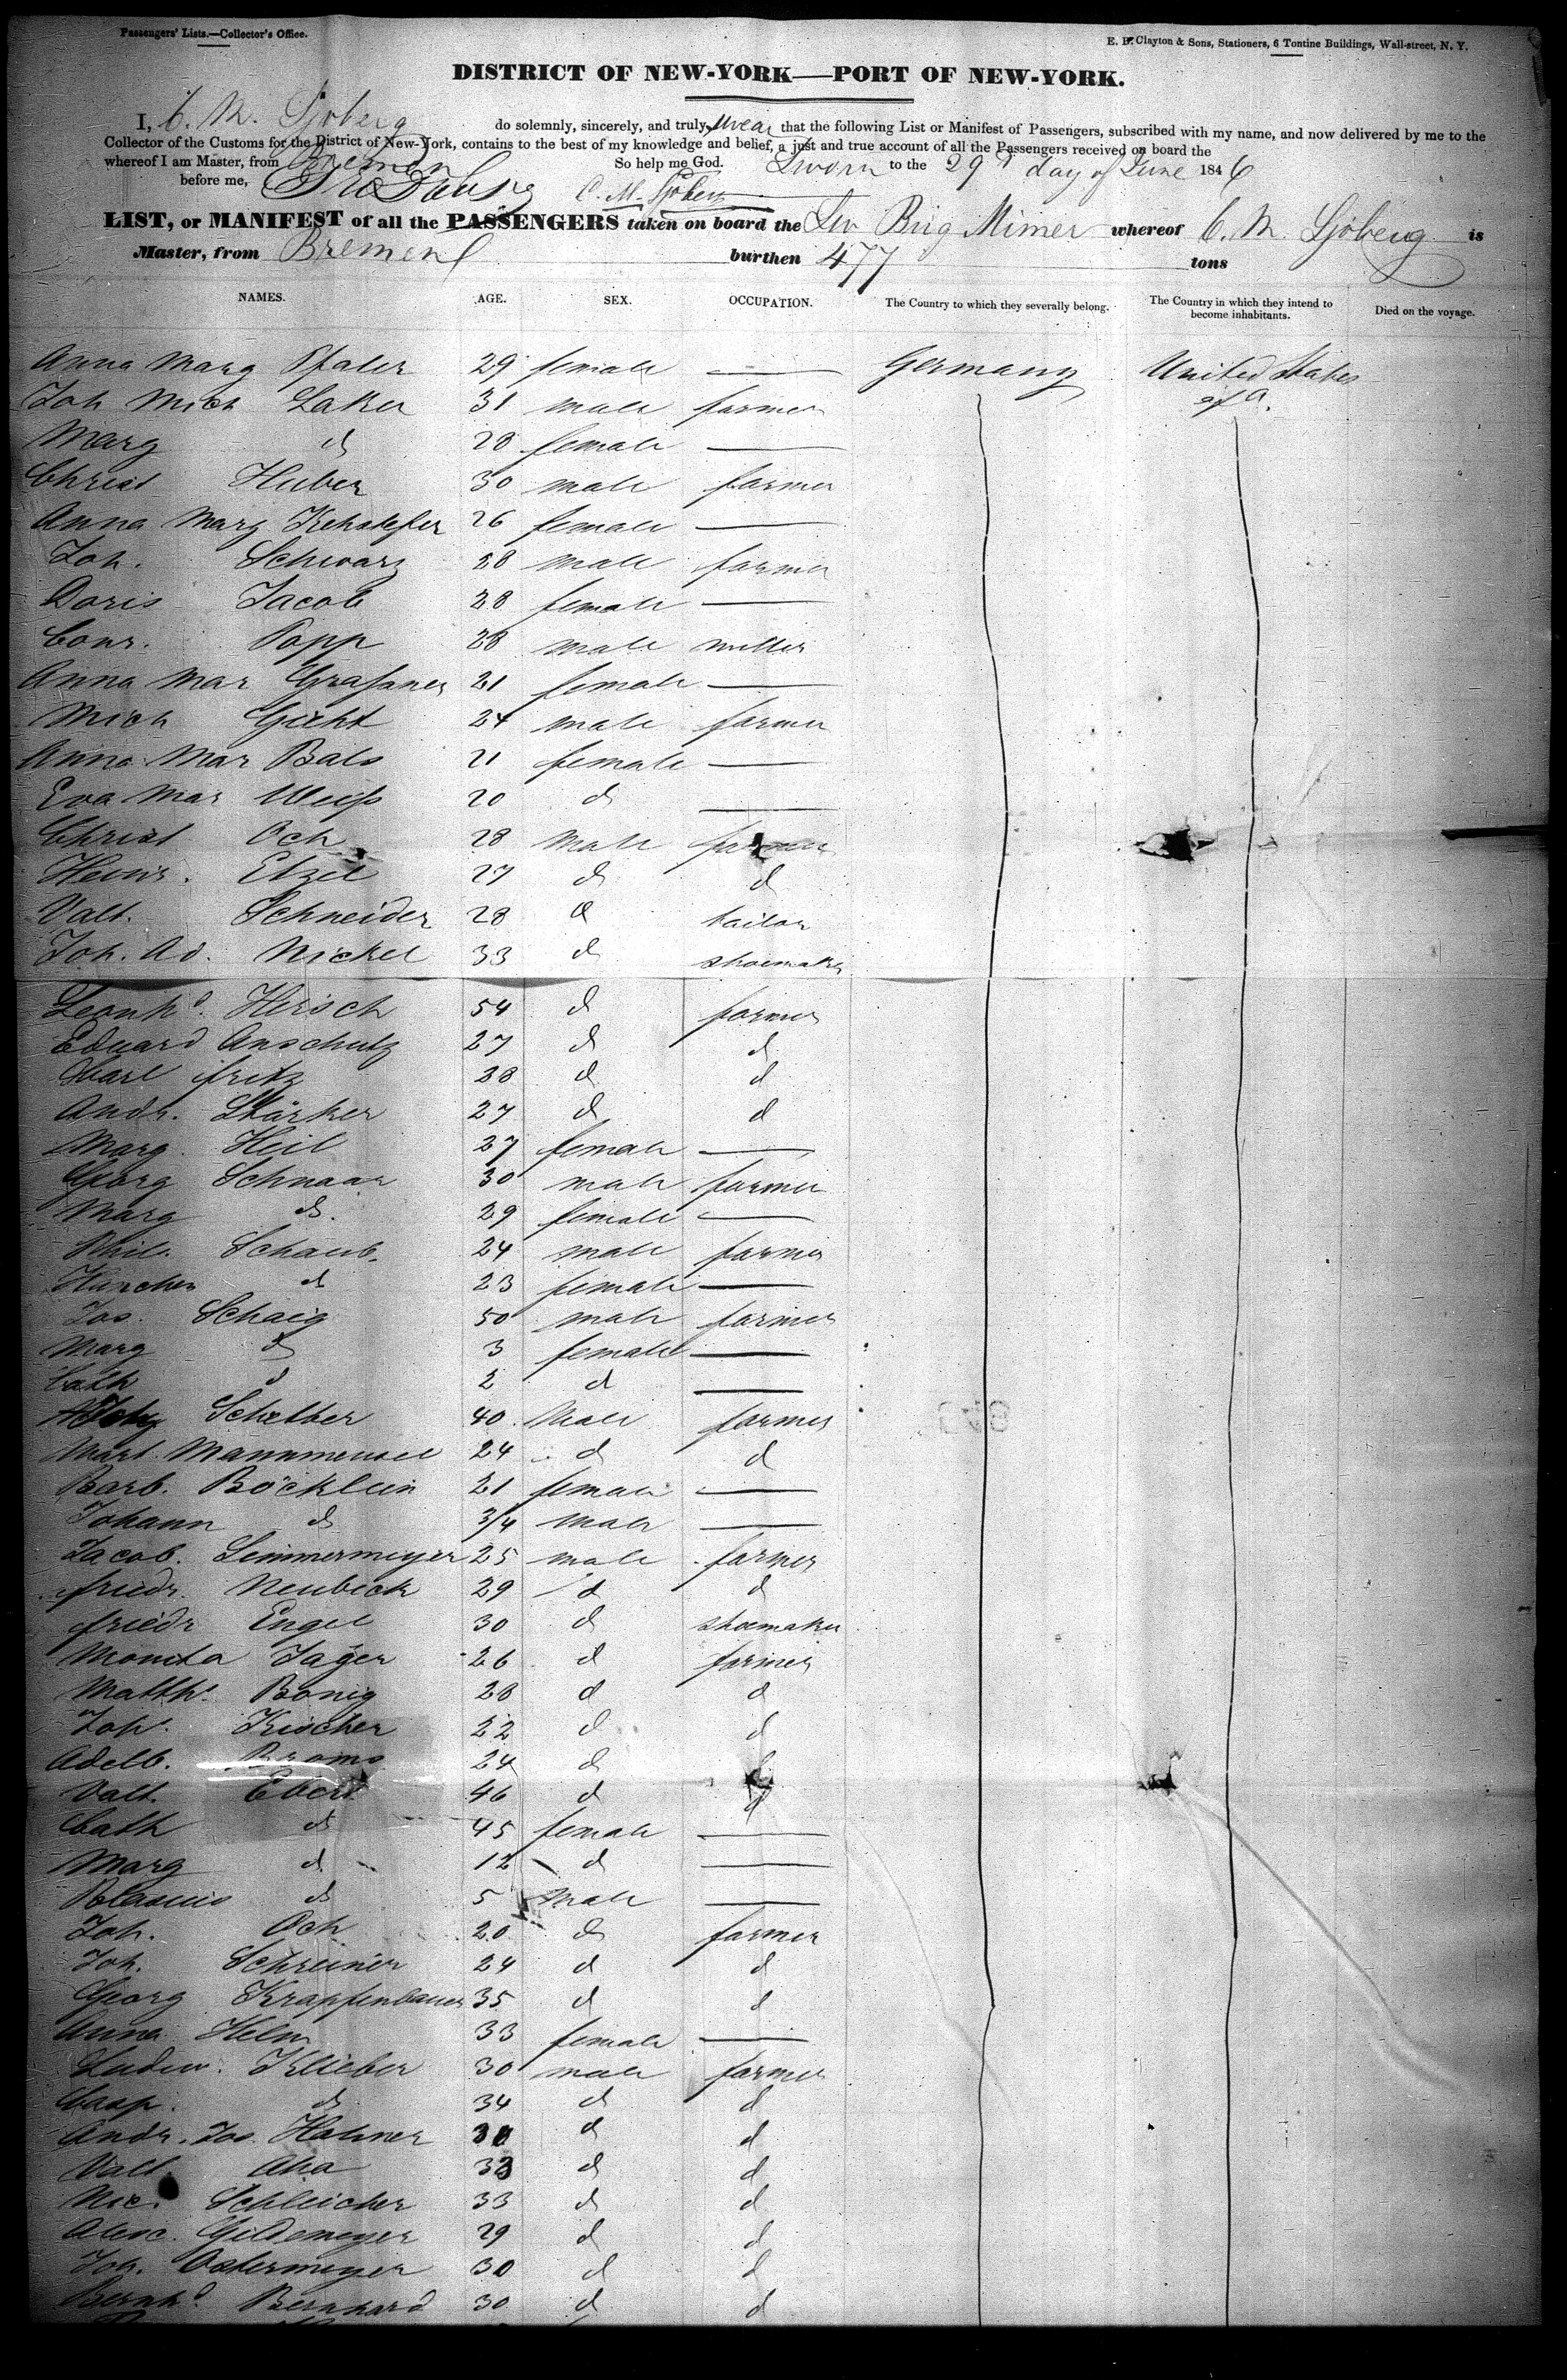 Passengers' Lists.—Collector's Office.
E. B. Clayton & Sons, Stationers, 6 Tontine Buildings, Wall-street, N. Y.
DISTRICT OF NEW-YORK—PORT OF NEW-YORK.
I, C. M. Sjoberg do solemnly, sincerely, and truly swear that the following List or Manifest of Passengers, subscribed with my name, and now delivered by me to the
Collector of the Customs for the District of New-York, contains to the best of my knowledge and belief, a just and true account of all the Passengers received on board the
whereof I am Master, from Bremen So help me God. Sworn to the 29 day of June 1846
before me, C. M. Sjoberg
LIST, or MANIFEST of all the PASSENGERS taken on board the Brig Mimer whereof C. M. Sjöberg is
Master, from Bremen burthen 477 tons
NAMES. AGE. SEX. OCCUPATION. The Country to which they severally belong. The Country in which they intend to become inhabitants. Died on the voyage.
Anna Marg Pfaler 29 female — Germany United States
Joh Mich Laker 31 male farmer of A.
Marg d 28 female —
Christ Huber 30 male farmer
Anna Marg 26 female —
Joh. Schwarz 28 male farmer
Doris Jacob 28 female —
Conr. Popp 28 male miller
Anna Mar Graſsner 21 female —
Mich Gicht 24 male farmer
Anna Mar Bals 21 female —
Eva Mar Weiſs 20 d —
Christ Och 28 male farmer
Heinr. Etzel 27 d d
Valt. Schneider 28 d tailor
Joh. Ad. Nickel 33 d shoemaker
Leonhd. Hirsch 54 d farmer
Eduard Anschutz 27 d d
Carl Fritz 28 d d
Andr. Stärker 27 d d
Marg. Heil 27 female —
Georg Schnaar 30 male farmer
Marg d. 29 female —
Phil. Schaub. 24 male farmer
d 23 female —
Jos. Schaig 50 male farmer
Marg d 3 female —
Cath d 2 d —
Schelber 40 Male farmer
Mart. Mannmeusel 24 d d
Barb. Böcklein 21 female —
Johann d 3/4 Male —
Jacob. Semmermeyer 25 male farmer
friedr. Neubeck 29 d d
friedr Engel 30 d shoemaker
Jager 26 d farmer
Matths. Bonig 28 d d
Joh. Kischer 22 d d
Adelb. Brams 24 d d
Valt. Ebert 46 d d
Cath d 45 female —
Marg d. 12 d —
Blasius d 5 Male —
Joh. Och 20 d farmer
Joh. Schreiner 24 d d
Georg Krapfenbauer 35 d d
Anna Helm 33 female —
Ludw. Klieber 30 male farmer
Casp. d 34 d d
Andr. Jos. Hahner d d
Valt. Aha 33 d d
Nic. Schleicher 33 d d
Alex. Gildemeyer 29 d d
Joh. Ostermeyer 30 d d
Bernhd. Bernhard 30 d d